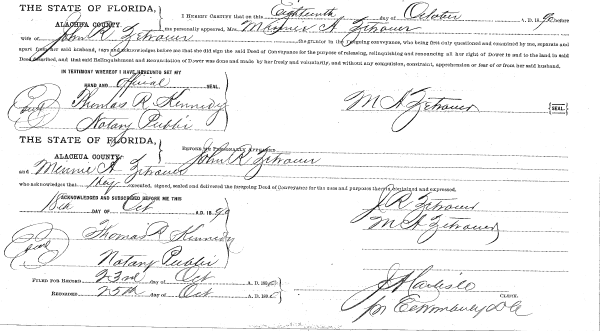 THE STATE OF FLORIDA,
ALACHUA COUNTY.
I HEREBY CERTIFY that on this Eighteenth day of October A. D. 1890 before
me personally appeared, Mrs. Minnie A Zetrouer
wife of John R Zetrouer the grantor in the foregoing conveyance, who being first duly questioned and examined by me, separate and
apart from her said husband, says and acknowledges before me that she did sign the said Deed of Conveyance for the purpose of releasing, relinquishing and renouncing all her right of Dower in and to the land in said
Deed described, and that said Relinquishment and Renunciation of Dower was done and made by her freely and voluntarily, and without any compulsion, constraint, apprehension or fear of or from her said husband,
IN TESTIMONY WHEREOF I HAVE HEREUNTO SET MY
HAND AND official SEAL,
Seal Thomas R Kennedy
M A Zetrouer {SEAL.}
Notary Public
THE STATE OF FLORIDA,
ALACHUA COUNTY.
BEFORE ME PERSONALLY APPEARED John R Zetrouer
and Minnie A Zetrouer
who acknowledges that they executed, signed, sealed and delivered the foregoing Deed of Conveyance for the uses and purposes therein contained and expressed,
ACKNOWLEDGED AND SUBSCRIBED BEFORE ME THIS
18th DAY OF Oct A. D. 1890
J R Zetrouer
M A Zetrouer
Seal Thomas R Kennedy
Notary Public
FILED FOR RECORD 23rd day of Oct A. D. 1890
RECORDED 25th day of Oct A. D. 1890
CLERK.
per